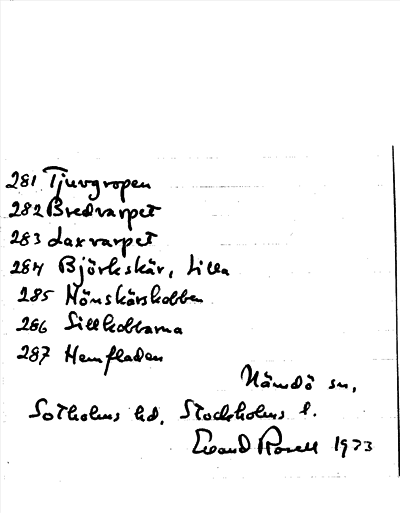 281 Tjuvgropen
282 Bredvarpet
283 Laxvarpet
284 Björkskär, Lilla
285 Hönskärskobben
286 Sillkobbarna
287 Hemfladen
Nämdö sn,
Sotholms hd, Stockholms l.
Evand Rosell 1973